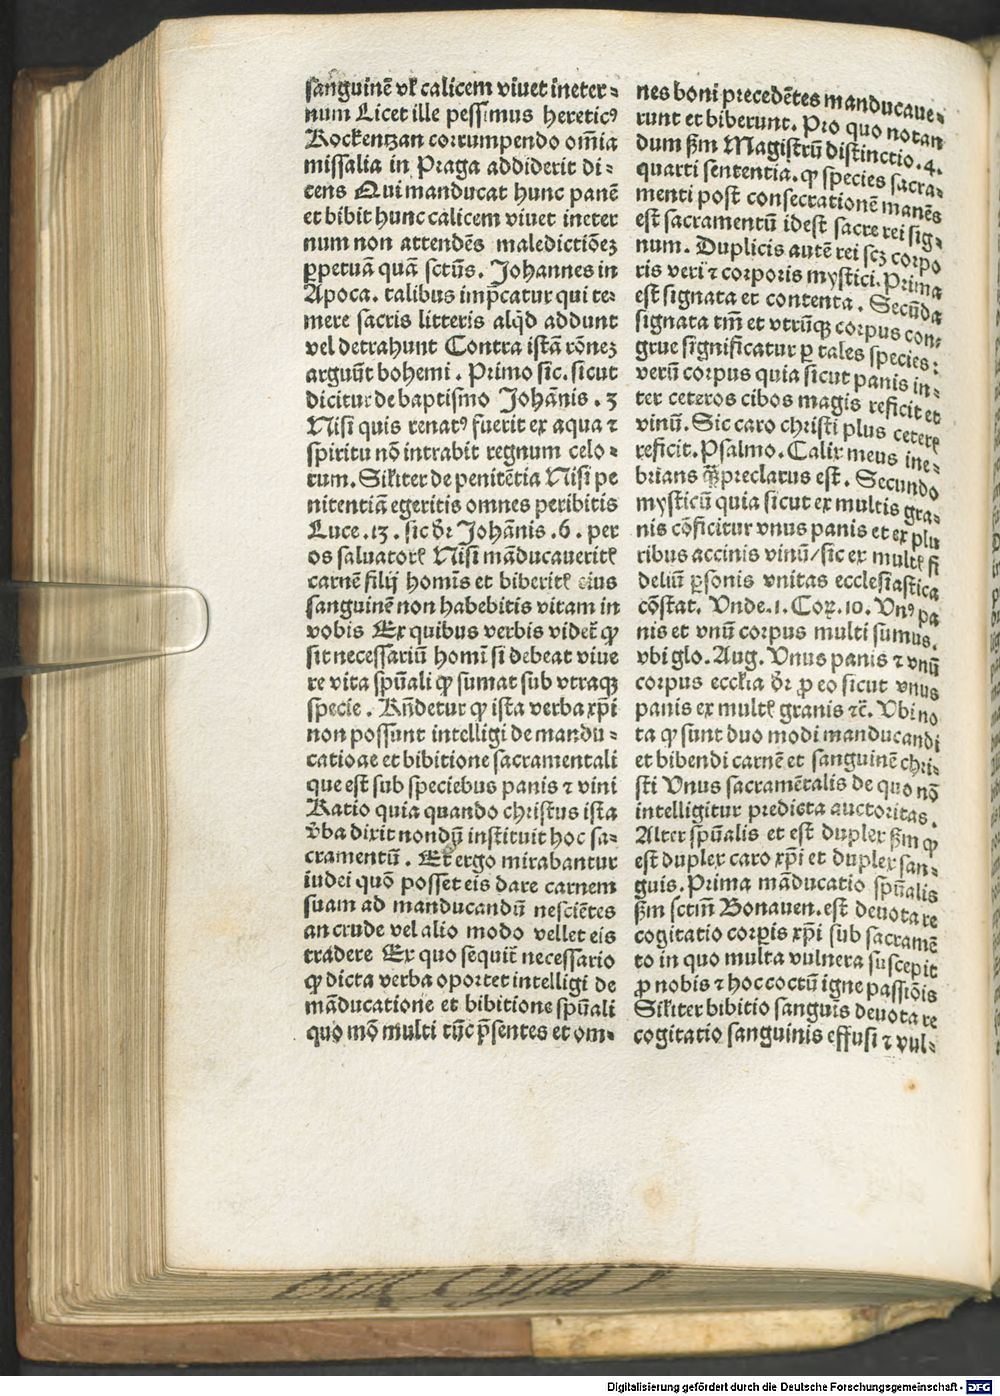 sanguinē vƚ calicem viuet ineter⸗
num Licet ille pessimus hereticꝰ
Rockentzan corrumpendo om̄ia
missalia in Praga addiderit di⸗
cens Qui manducat hunc panē
et bibit hunc calicem viuet ineter
num non attendēs maledictiōeꝫ
ꝑpetuā quā sctūs. Johannes in
Apoca. talibus imp̄catur qui te⸗
mere sacris litteris alqd̄ addunt
vel detrahunt Contra istā rōneꝫ
arguūt bohemi. Primo sic. sicut
dicitur de baptismo Johānis. 3
Nisi quis renatꝰ fuerit ex aqua ⁊
spiritu nō intrabit regnum celo⸗
rum. Siƚiter de penitētia Nisi pe
nitentiā egeritis omnes peribitis
Luce. 13. sic dr̄ Johānis. 6. per
os saluatorꝭ Nisi māducaueritꝭ
carnē filij homīs et biberitꝭ eius
sanguinē non habebitis vitam in
vobis Ex quibus verbis videt̄ ꝙ
sit necessariū homī si debeat viue
re vita spūali ꝙ sumat sub vtraqꝫ
specie. Rn̄detur ꝙ ista verba xp̄i
non possunt intelligi de mandu⸗
catioae et bibitione sacramentali
que est sub speciebus panis ⁊ vini
Ratio quia quando christus ista
v̄ba dixit nondū instituit hoc sa⸗
cramentū. Et ergo mirabantur
iudei quō posset eis dare carnem
suam ad manducandū nesciētes
an crude vel alio modo vellet eis
tradere Ex quo sequit̄ necessario
ꝙ dicta verba oportet intelligi de
māducatione et bibitione spūali
quo mō multi tūc p̄sentes et om⸗
nes boni precedētes manducaue⸗
runt et biberunt. Pro quo notan
dum ẜm Magistrū distinctio. 4.
quarti sententiaꝝ. ꝙ species sacra⸗
menti post consecrationē manēs
est sacramentū idest sacre rei sig⸗
num. Duplicis autē rei scꝫ corpo
ris veri ⁊ corporis mystici. Prima
est signata et contenta. Secūda
signata tm̄ et vtrūqꝫ corpus con⸗
grue significatur ꝑ tales species:
verū corpus quia sicut panis in⸗
ter ceteros cibos magis reficit et
vinū. Sic caro christi plus ceterꝭ
reficit. Psalmo. Calix meus ine⸗
brians q̄ꝫ preclarus est. Secundo
mysticū quia sicut ex multis gra⸗
nis cōficitur vnus panis et ex plu
ribus accinis vinū/sic ex multꝭ fi
deliū ꝑsonis vnitas ecclesiastica
cōstat. Vnde. 1. Coꝝ. 10. Vnꝰ pa
nis et vnū corpus multi sumus.
vbi glo. Aug. Vnus panis ⁊ vnū
corpus eccƚia dr̄ ꝓ eo sicut vnus
panis ex multꝭ granis ⁊c̄. Vbi no
ta ꝙ sunt duo modi manducandi
et bibendi carnē et sanguinē chri⸗
sti Vnus sacramētalis de quo nō
intelligitur predicta auctoritas.
Alter spūalis et est duplex ẜm ꝙ
est duplex caro xp̄i et duplex san⸗
guis. Prima māducatio spūalis
ẜm sctm̄ Bonauen. est deuota re
cogitatio corꝑis xp̄i sub sacramē
to in quo multa vulnera suscepit
ꝓ nobis ⁊ hoc coctū igne passiōis
Siƚiter bibitio sanguis deuota re
cogitatio sanguinis effusi ⁊ vul⸗
Digitalisierung gefördert durch die Deutsche Forschungsgemeinschaft - DFG